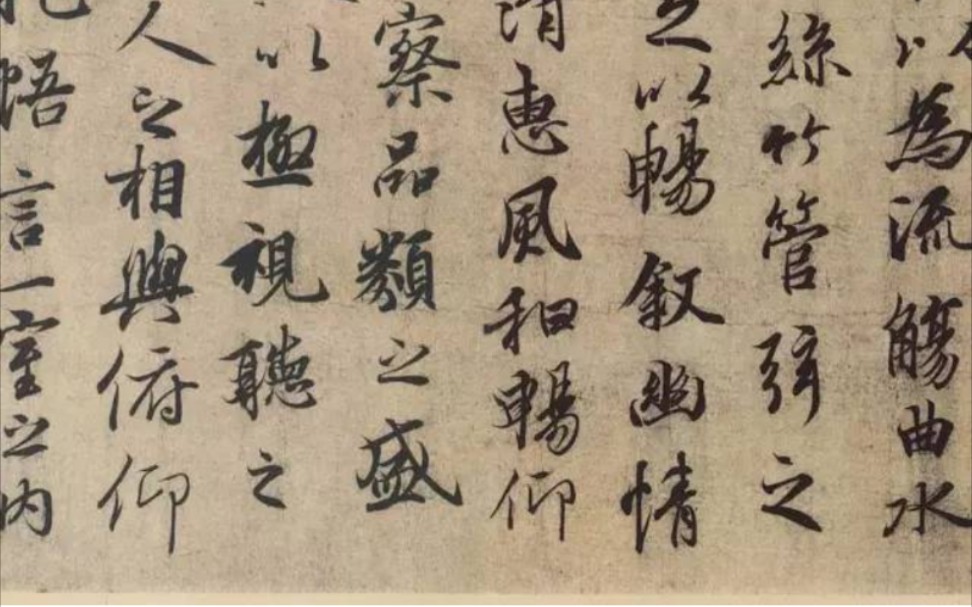 以為流觴曲水
絲竹管弦之
足以暢敘幽情
清惠風和暢仰
察品類之盛
以極視聽之
人之相與俯仰
抱悟言一室之内